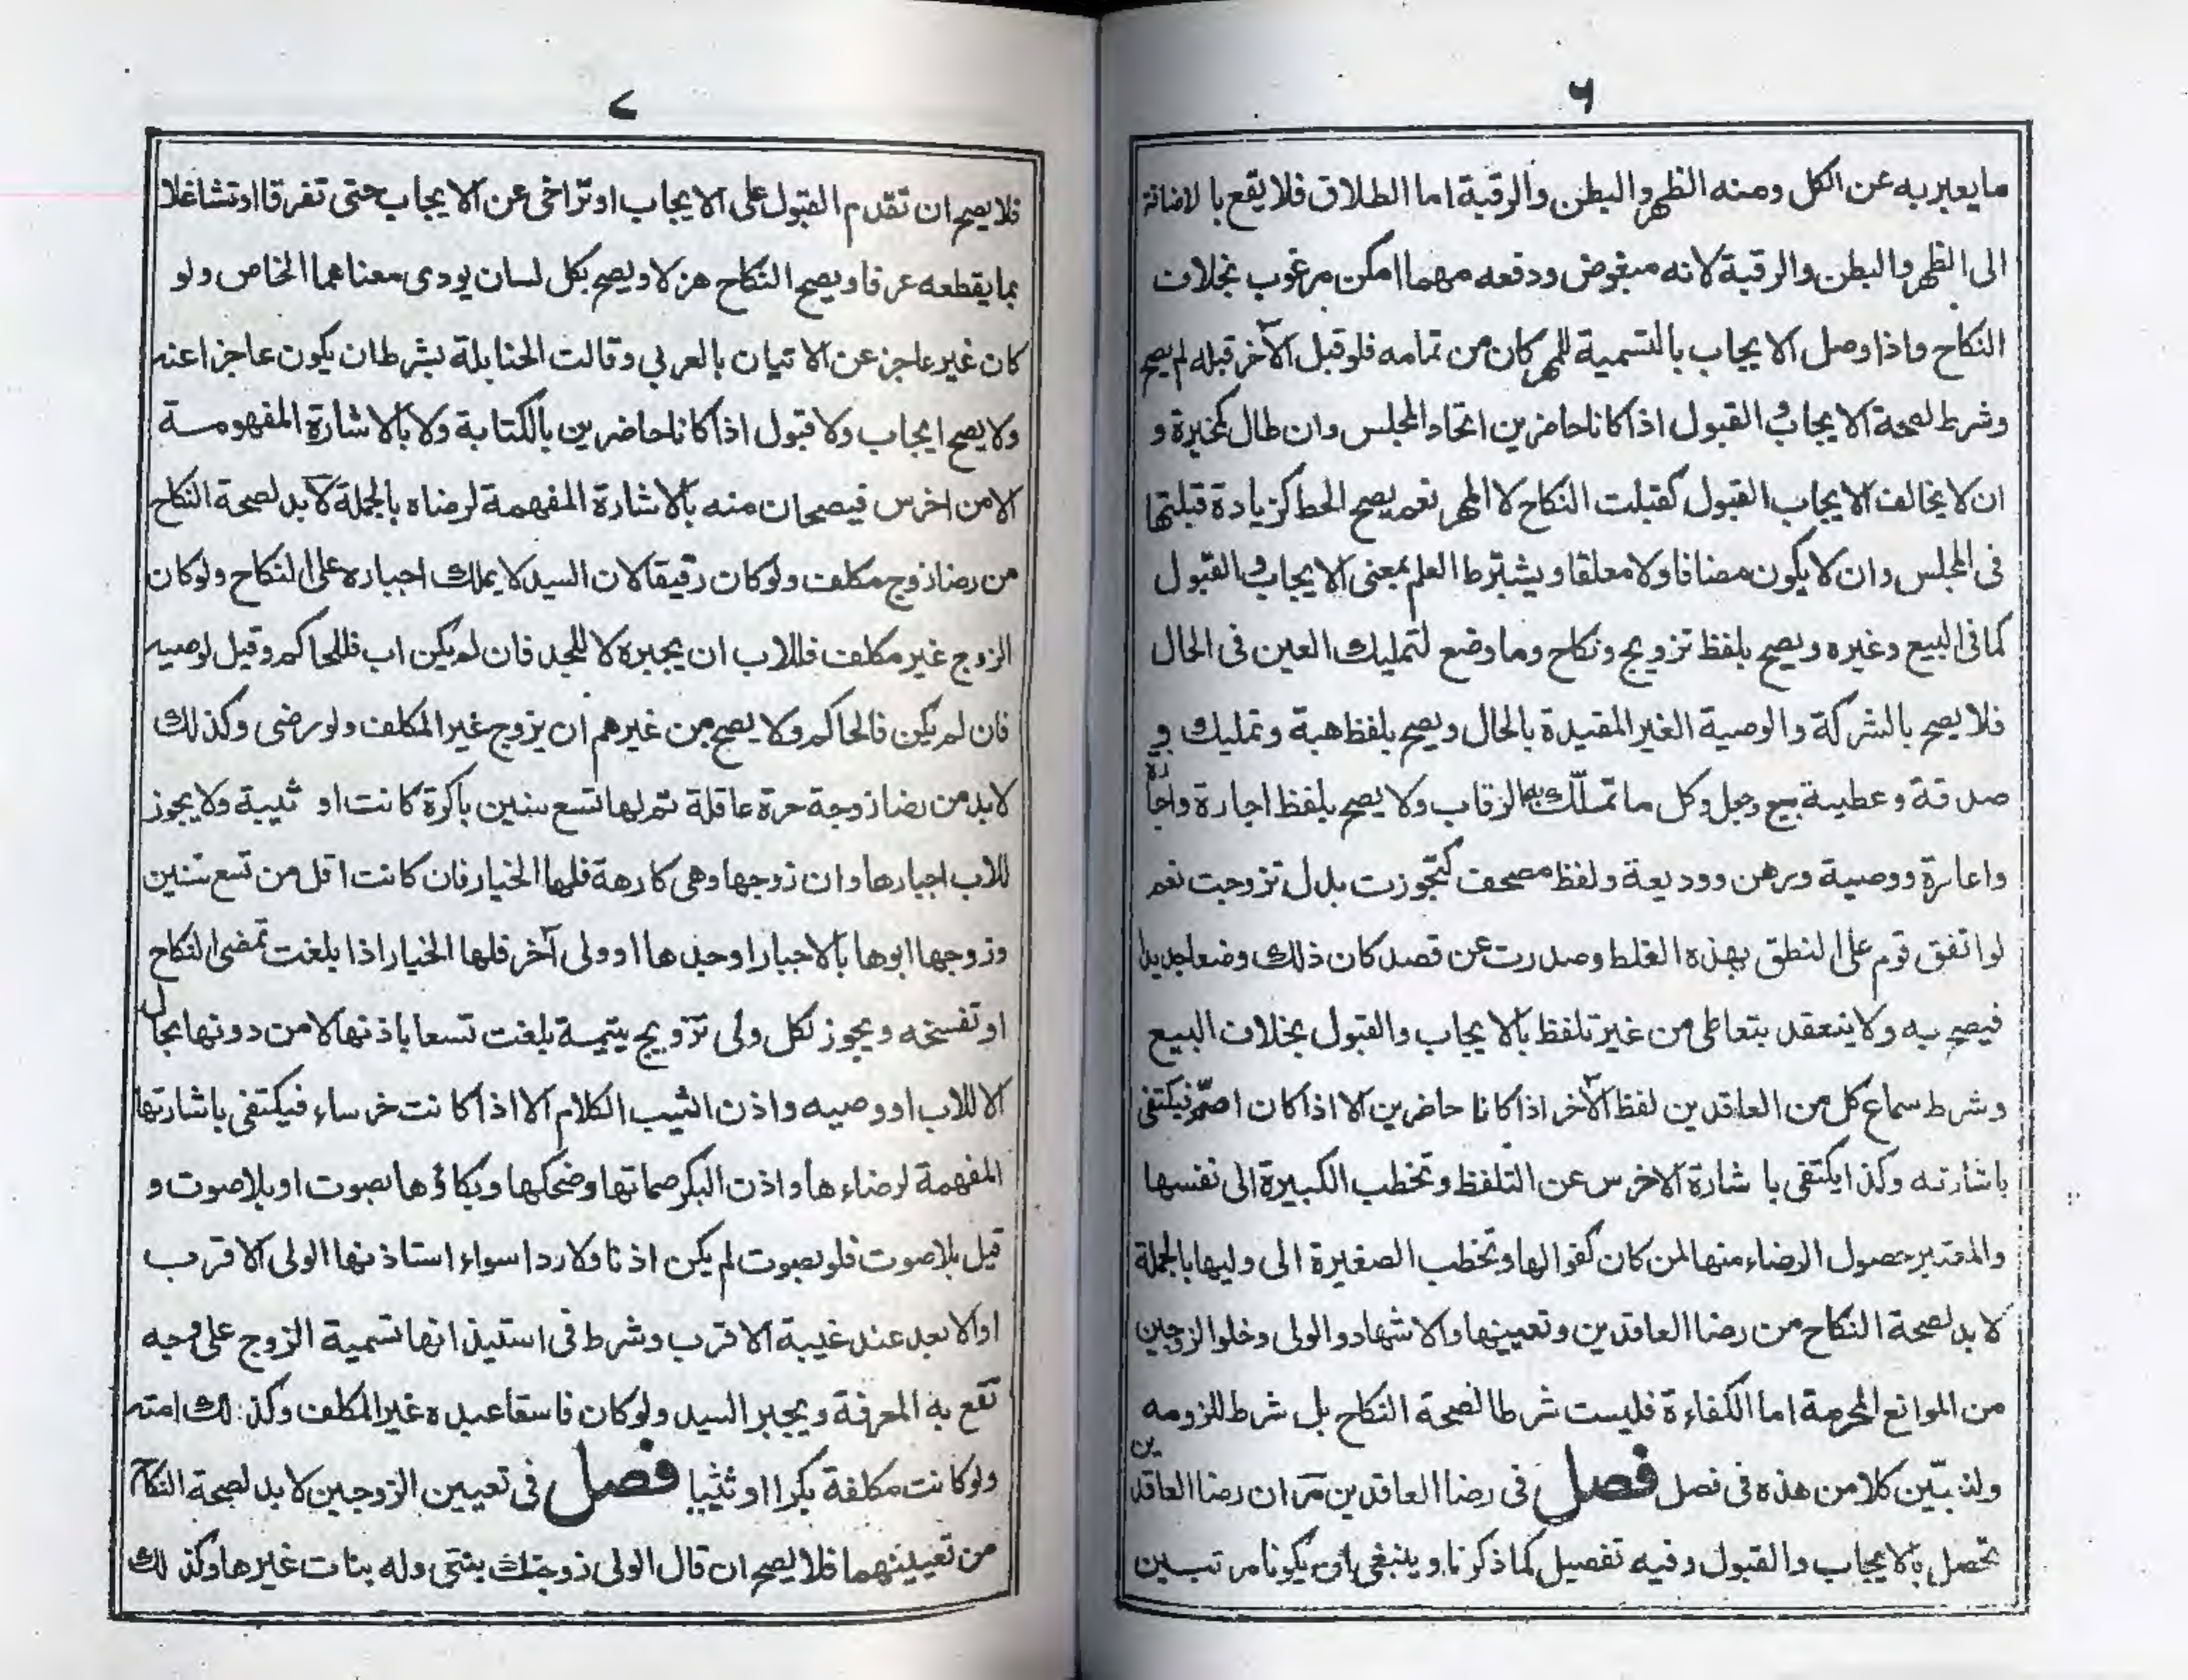 ٦
ما يعبر به عن الكل ومنه الظهر والبطن والرقبة اما الطلاق فلا يقع بالاضافة
الى الظهر والبطن والرقبة لانه مبغوض ودفعه مهما امكن مرغوب بخلاف
النكاح واذا وصل الايجاب بالتسمية للمهر كان من تمامه فلو قبل الآخر قبله لم يصح
وشرط لصحة الايجاب والقبول اذا كانا حاضرين اتحاد المجلس وان طال كمخيرة و
ان لا يخالف الايجاب القبول كقبلت النكاح لا المهر نعم يصح الحط كزيادة قبلتها
فى المجلس وان لا يكون مضافا ولا معلقا ويشترط العلم بمعنى الايجاب والقبول
كما فى البيع وغيره ويصح بلفظ تزويج ونكاح وما وضع لتمليك العين فى الحال
فلا يصح بالشركة والوصية الغير المقيدة بالحال ويصح بلفظ هبة وتمليك و
صدقة وعطية بيع وجعل وكل ما تملك به الرقاب ولا يصح بلفظ اجارة واجازة
واعارة ووصية ورهن ووديعة ولفظ مصحف كتجوزت بدل تزوجت نعم
لو اتفق قوم على النطق بهذه الغلط وصدرت عن قصد كان ذلك وضعا جديدا
فيصح به ولا ينعقد بتعاطى من غير تلفظ بالايجاب والقبول بخلاف البيع
وشرط سماع كل من العاقدين لفظ الآخر اذا كانا حاضرين الا اذا كان اصم فيكتفى
باشارته وكذا يكتفى با شارة الاخرس عن التلفظ وتخطب الكبيرة الى نفسها
والمعتبر حصول الرضاء منها لمن كان كفوا لها وتخطب الصغيرة الى وليها بالجملة
لا بد لصحة النكاح من رضا العاقدين وتعيينها والاشهاد والولى وخلوا الزوجين
من الموانع المحرمة اما الكفاءة فليست شرطا لصحة النكاح بل شرط للزومه
ولنبين كلا من هذه فى فصل فصل فى رضا العاقدين مر ان رضا العاقدين
تحصل بالايجاب والقبول وفيه تفصيل كما ذكرنا وينبغى بان يكونا مرتبين
٧
فلا يصح ان تقدم القبول على الايجاب او تراخى عن الايجاب حتى تفرقا او تشاغلا
بما يقطعه عرفا ويصح النكاح هزلا ويصح بكل لسان يودى معناهما الخاص ولو
كان غير عاجز عن الاتيان بالعربي وقالت الحنابلة بشرط ان يكون عاجزا عنه
ولا يصح ايجاب ولا قبول اذا كانا حاضرين بالكتابة ولا بالاشارة المفهومة
الا من اخرس فيصحان منه بالاشارة المفهمة لرضاه بالجملة لا بد لصحة النكاح
من رضا زوج مكلف ولو كان رقيقا لان السيد لا يملك اجباره على النكاح ولو كان
الزوج غير مكلف فللاب ان يجبره لا للجد فان لم يكن اب فللحاكم وقيل لوصيه
فان لم يكن فالحاكم ولا يصح من غيرهم ان يزوج غير المكلف ولو رضى وكذلك
لا بد من رضا زوجة حرة عاقلة تم لها تسع سنين باكرة كانت او ثيبة ولا يجوز
للاب اجبارها وان زوجها وهى كارهة فلها الخيار فان كانت اقل من تسع سنين
وزوجها ابوها بالاجبار او جدها او ولى آخر فلها الخيار اذا بلغت تمضى النكاح
او تفسخه ويجوز لكل ولى تزويج يتيمة بلغت تسعا باذنها لا من دونها بحال
الا للاب او وصيه واذن الثيب الكلام الا اذا كانت خرساء فيكتفى باشارتها
المفهمة لرضاءها واذن البكر صماتها وضحكها وبكاؤها بصوت او بلا صوت و
قيل بلا صوت فلو بصوت لم يكن اذنا ولا ردا سواء استاذنها الولى الاقرب
او الابعد عند غيبة الاقرب وشرط فى استيذانها تسمية الزوج على وجه
تقع به المعرفة ويجبر السيد ولو كان فاسقا عبده غير المكلف وكذلك امته
ولو كانت مكلفة بكرا او ثيبا فصل فى تعيين الزوجين لا بد لصحة النكاح
من تعيينهما فلا يصح ان قال الولى زوجتك بنتى وله بنات غيرها وكذلك